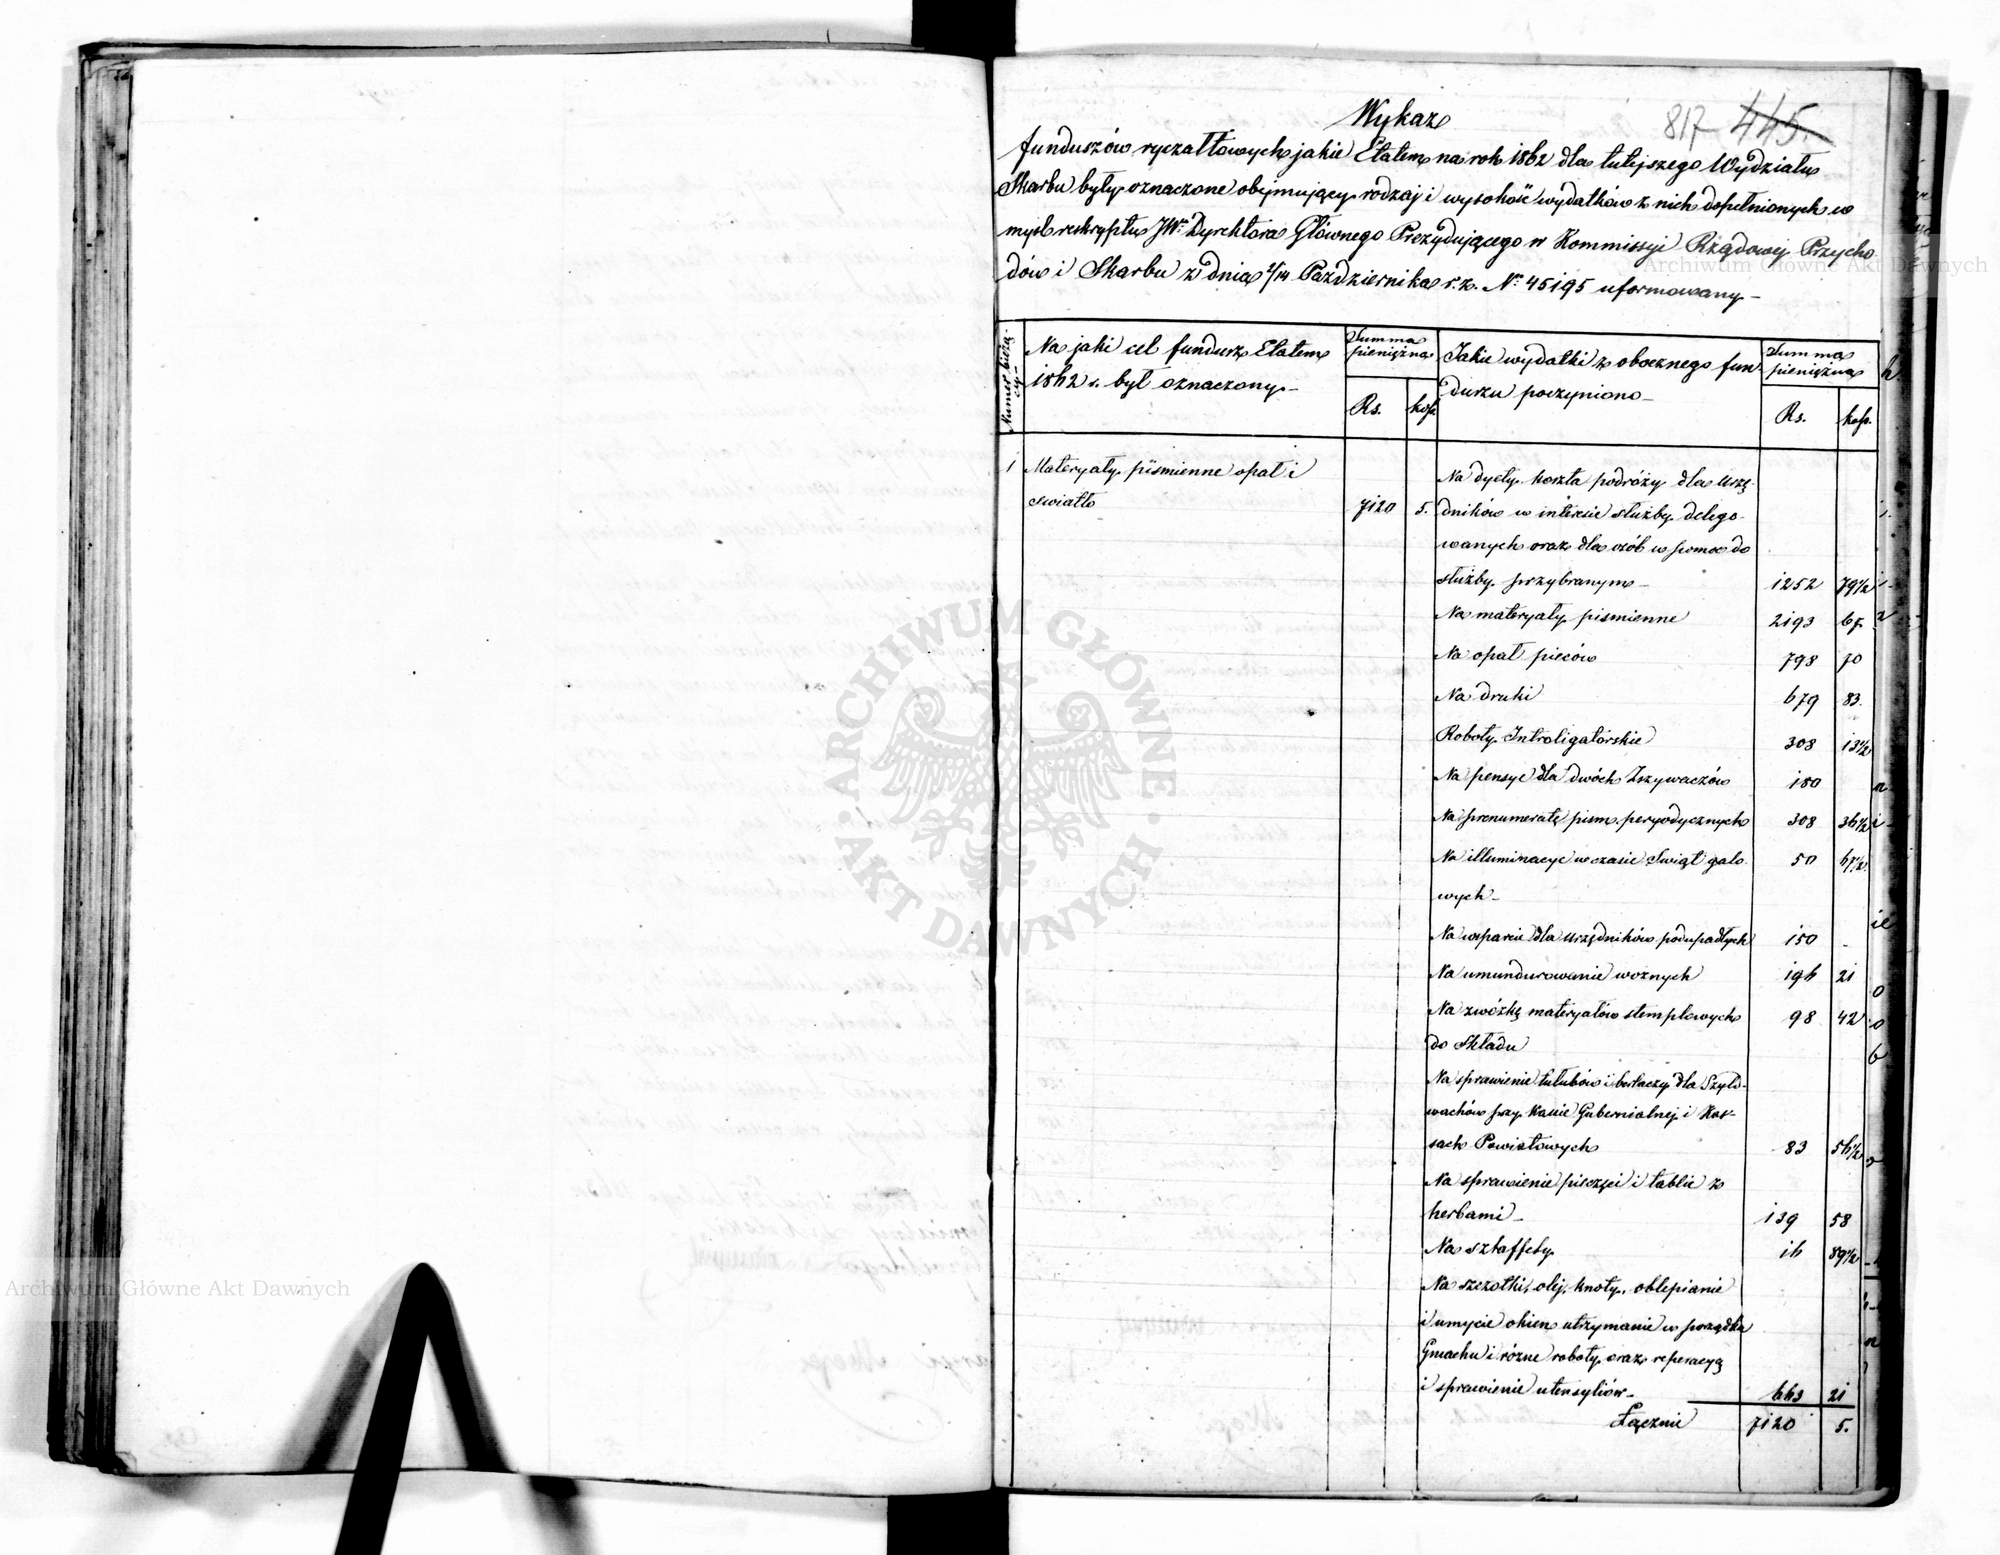 817 445.
Wykaz
funduszów ryczałtowych jakie Etatem na rok 1862 dla tutejszego Wydziału
Skarbu były oznaczone obejmujący rodzaj i wysokość wydatków z nich dopełnionych w
myśl reskryptu JW. Dyrektora Głównego Prezydującego w Kommissyi Rządowej Przycho
dów i Skarbu z dnia 2/14 Października r.z. Nr 45195 uformowany -
Numer bieżą-
cy-
Na jaki cel fundusz Etatem
1862 r. był oznaczony -
Summa
pieniężna
Rs. kop.
Jakie wydatki z obocznego fun-
duszu poczyniono -
Summa
pieniężna
Rs. kop.
1 Materyały piśmienne opał i
światło 7120 5.
Na dyety koszta podróży dla urzę-
dników w interesie służby delego-
wanych oraz dla osób w pomoc do
służby przybranym - 1252 79 1/2
Na materyały piśmienne 2193 67
Na opał pieców 798 70
Na druki 679 83.
Roboty Introligatorskie 308 13 1/2
Na pensye dla dwóch Zszywaczów 180
Na prenumeratę pism peryodycznych 308 36 1/2
Na illuminacye w czasie Świąt galo-
wych - 50 67 1/2
Na wsparcie dla urzędników podupadłych 150 -
Na umundurowanie woźnych 196 21
Na zwózkę materyałów stemplowych 98 42
do Składu
Na sprawienie tułubów i berłaczy dla Szyld-
wachów przy Kassie Gubernialnej i Kas-
sach Powiatowych 83 56 1/2
Na sprawienie pieczęci i tablic z
herbami - 139 58
Na sztaffety 16 89 1/2
Na szczotki, olej, knoty, oblepianie
i umycie okien utrzymanie w porządku
Gmachu i różne roboty oraz reperacyą
i sprawienie utensyliów - 663 21
Łącznie 7120 5.
Archiwum Główne Akt Dawnych
Archiwum Główne Akt Dawnych
ARCHIWUM GŁÓWNE · AKT DAWNYCH ·